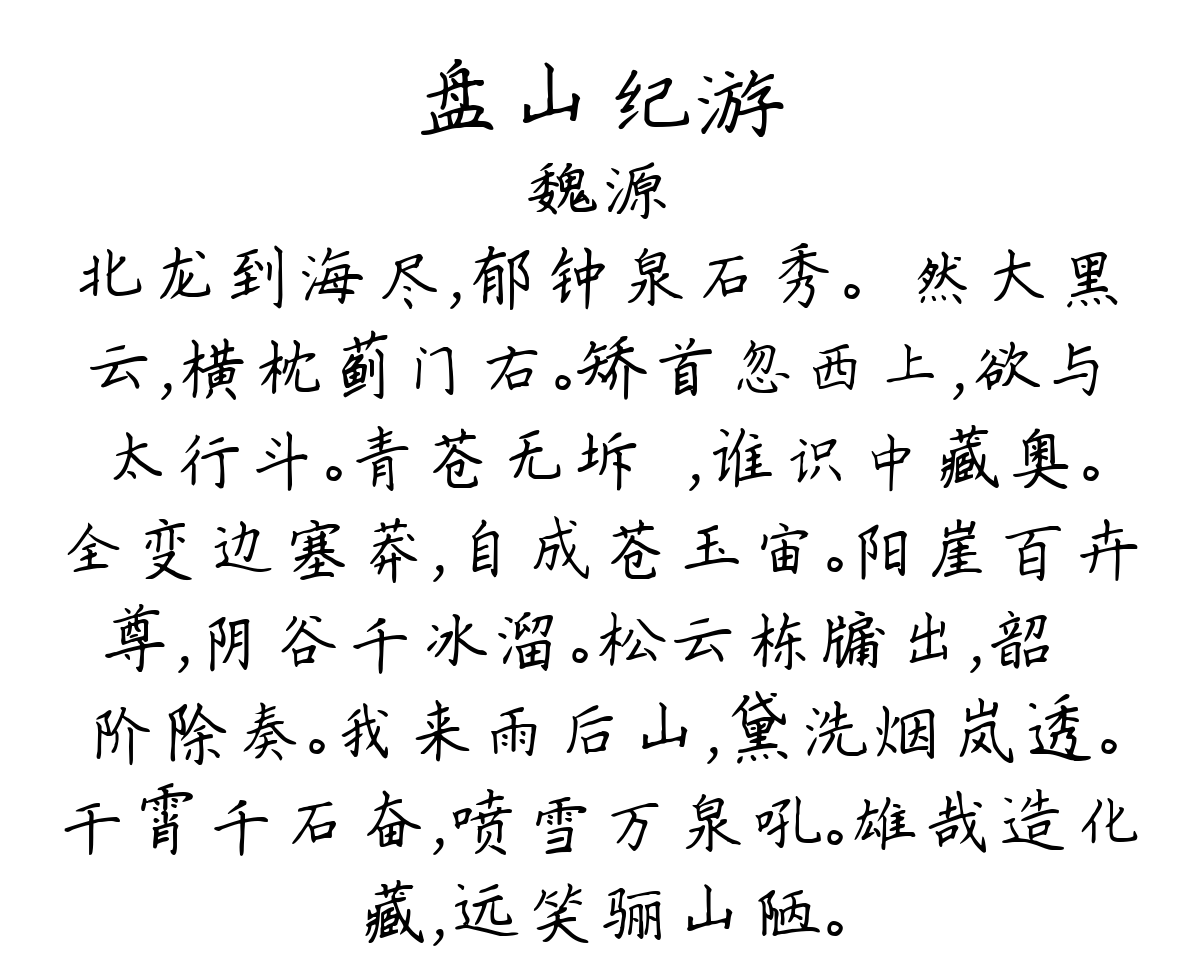 盘山纪游
魏源
北龙到海尽,郁钟泉石秀。 然大黑
云,横枕蓟门右。矫首忽西上,欲与
太行斗。青苍无坼 ,谁识中藏奥。
全变边塞莽,自成苍玉宙。阳崖百卉
尊,阴谷千冰溜。松云栋牖出,韶
阶除奏。我来雨后山,黛洗烟岚透。
干霄千石奋,喷雪万泉吼。雄哉造化
藏,远笑骊山陋。